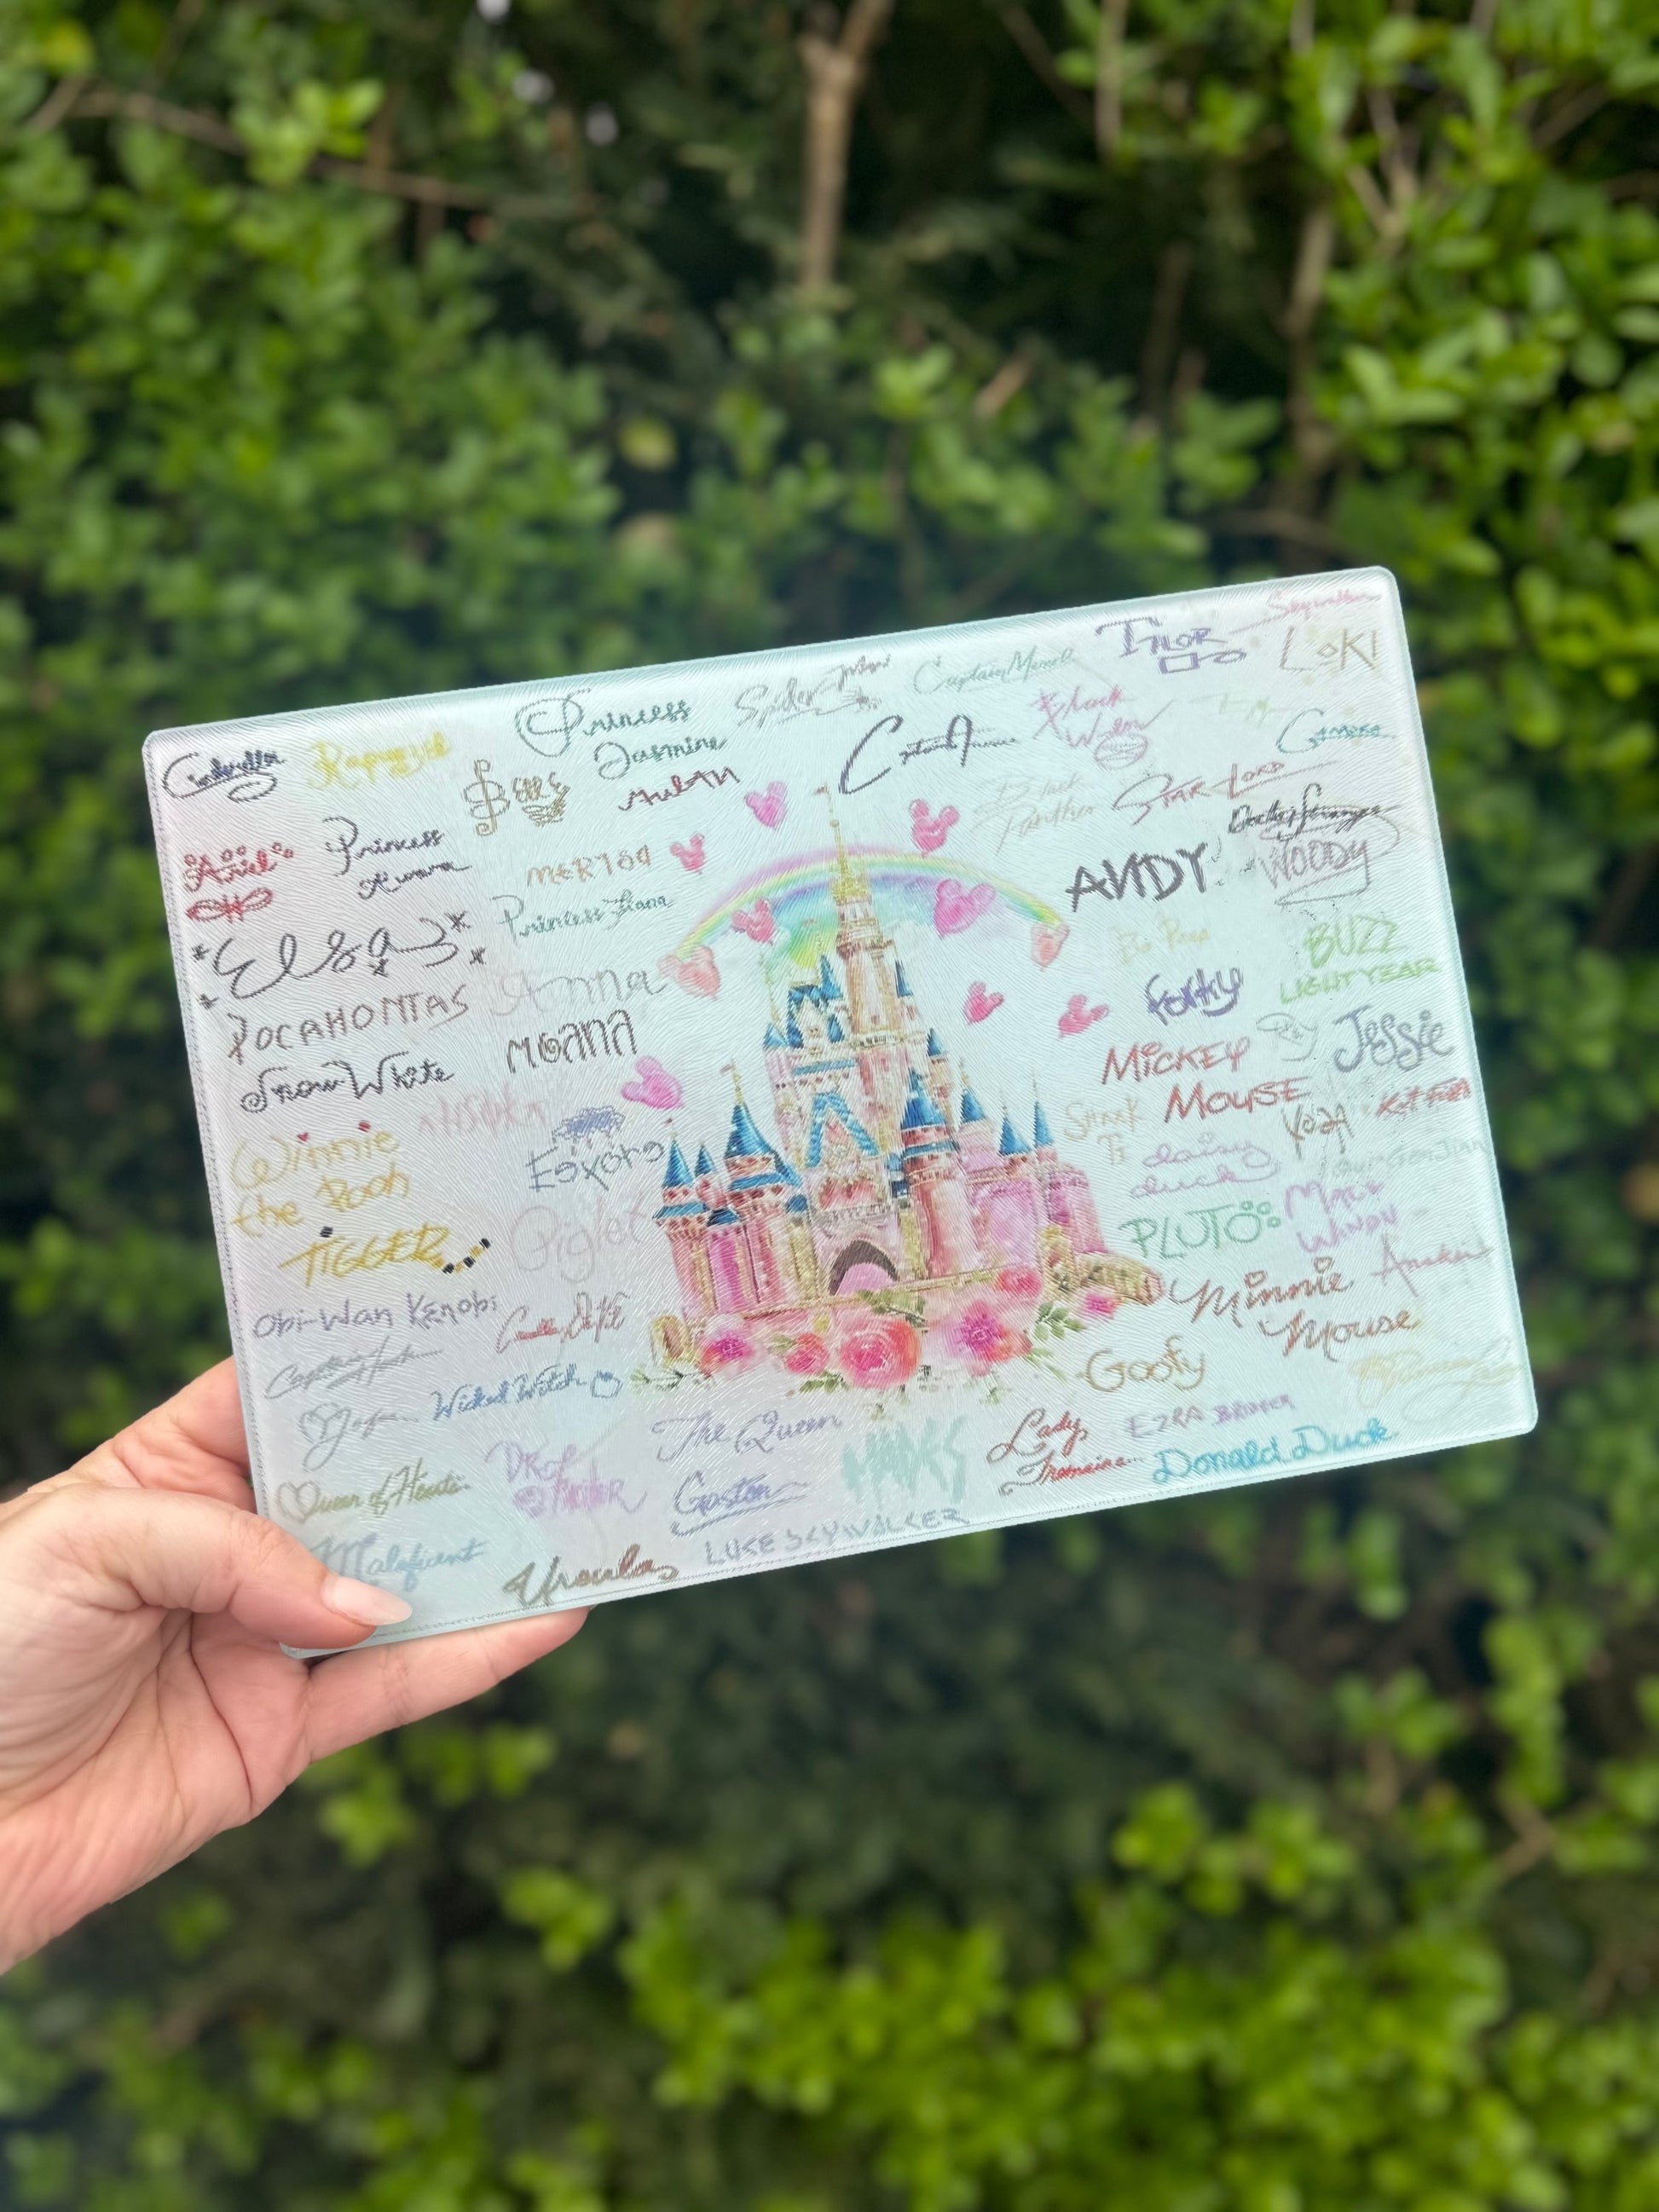 Cinderella
Rapunzel
Belle
Princess
Jasmine
Spider Man
Captain Marvel
Thor
Skywalker
LOKI
Ariel
Princess
Aurora
MULAN
MERIDA
Princess Tiana
Black
Widow
Gamora
Black
Panther
STAR-LORD
Doctor Strange
ANDY
WOODY
Elsa
Anna
Bo Peep
BUZZ
LIGHTYEAR
POCAHONTAS
MOANA
forky
Jessie
Snow White
AHSOKA
MICKEY
MOUSE
Winnie
the Pooh
Eeyore
SHAAK
TI
YODA
Kit Fisto
daisy
duck
TIGGER
Piglet
PLUTO
MACE
WINDU
Obi-Wan Kenobi
Minnie
Mouse
Anakin
Captain Hook
Wicked Witch
Goofy
Jafar
The Queen
Lady
Tremaine
EZRA BRIDGER
Queen of Hearts
Gaston
Donald Duck
Maleficent
Ursula
LUKE SKYWALKER